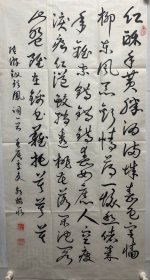 红酥手黄縢酒满城春色宫墙
柳东风恶欢情薄一怀愁绪几
年离索错错错春如旧人空瘦
泪痕红浥鲛绡透桃花落闲池阁
山盟虽在锦书难托莫莫莫
陆游钗头凤词一首